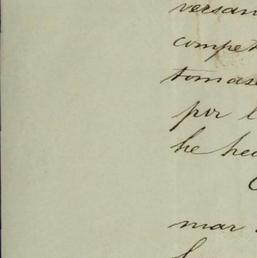 versan
compet
tomas
por l
he hec
mar